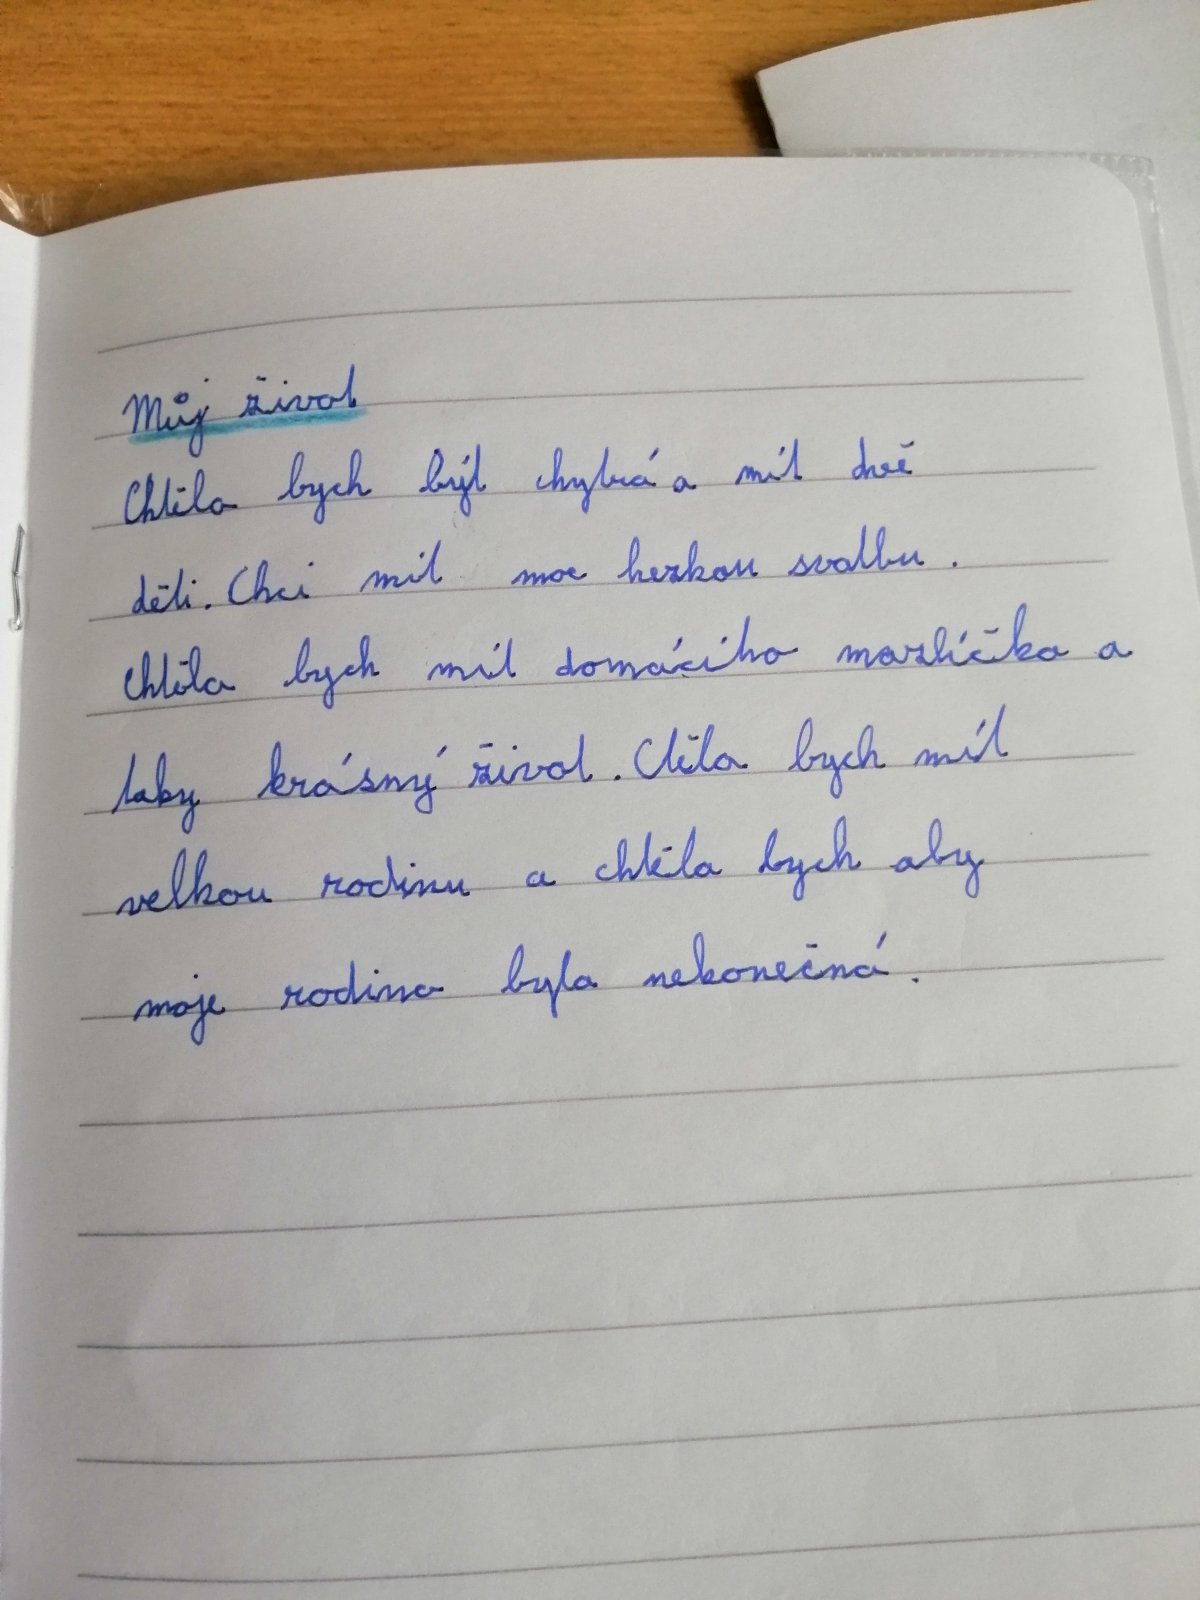 Můj život
Chtěla bych být chytrá a mít dvě
děti. Chci mít moc hezkou svatbu.
Chtěla bych mít domácího mazlíčka a
taky krásný život. Ctěla bych mít
velkou rodinu a chtěla bych aby
moje rodina byla nekonečná.